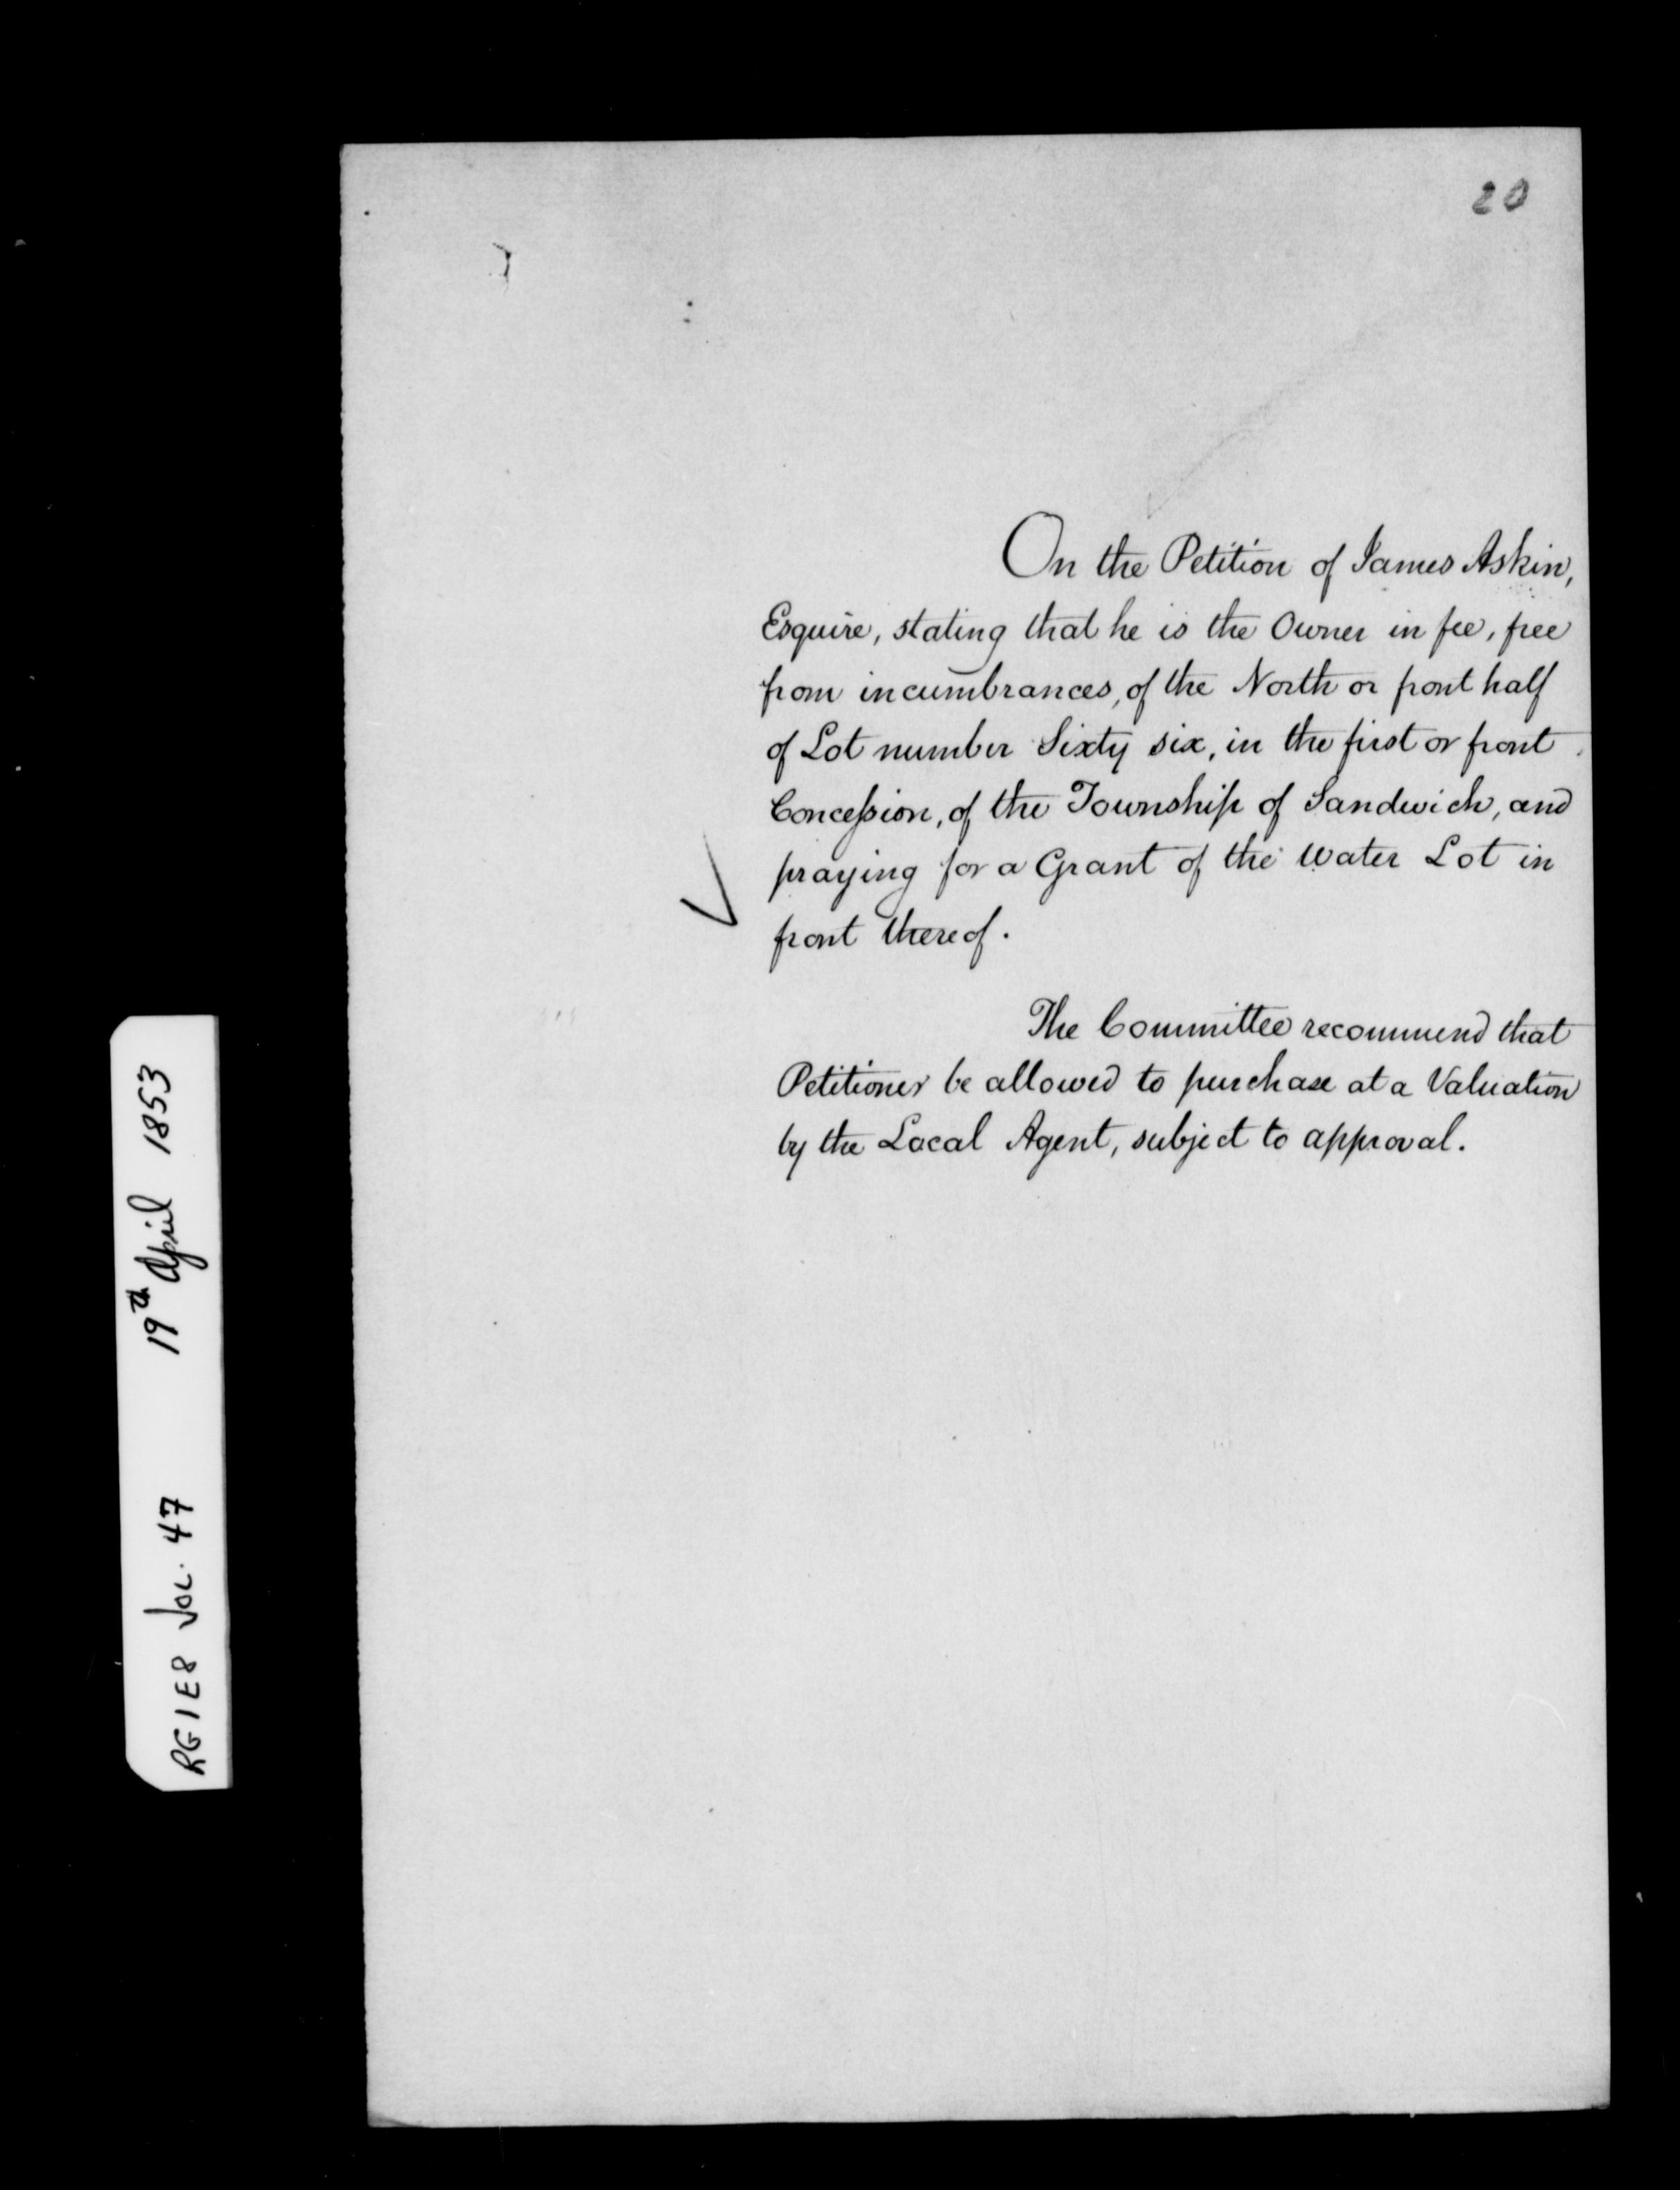 20
On the Petition of James Askin,
Esquire, stating that he is the Owner in fee, free
from incumbrances, of the North or front half
of Lot number Sixty six, in the first or front
Concession, of the Township of Sandwich, and
praying for a Grant of the Water Lot in
front thereof.
The Committee recommend that
Petitioner be allowed to purchase at a Valuation
by the Local Agent, subject to approval.
RG1E8 VOL. 47 19th April 1853